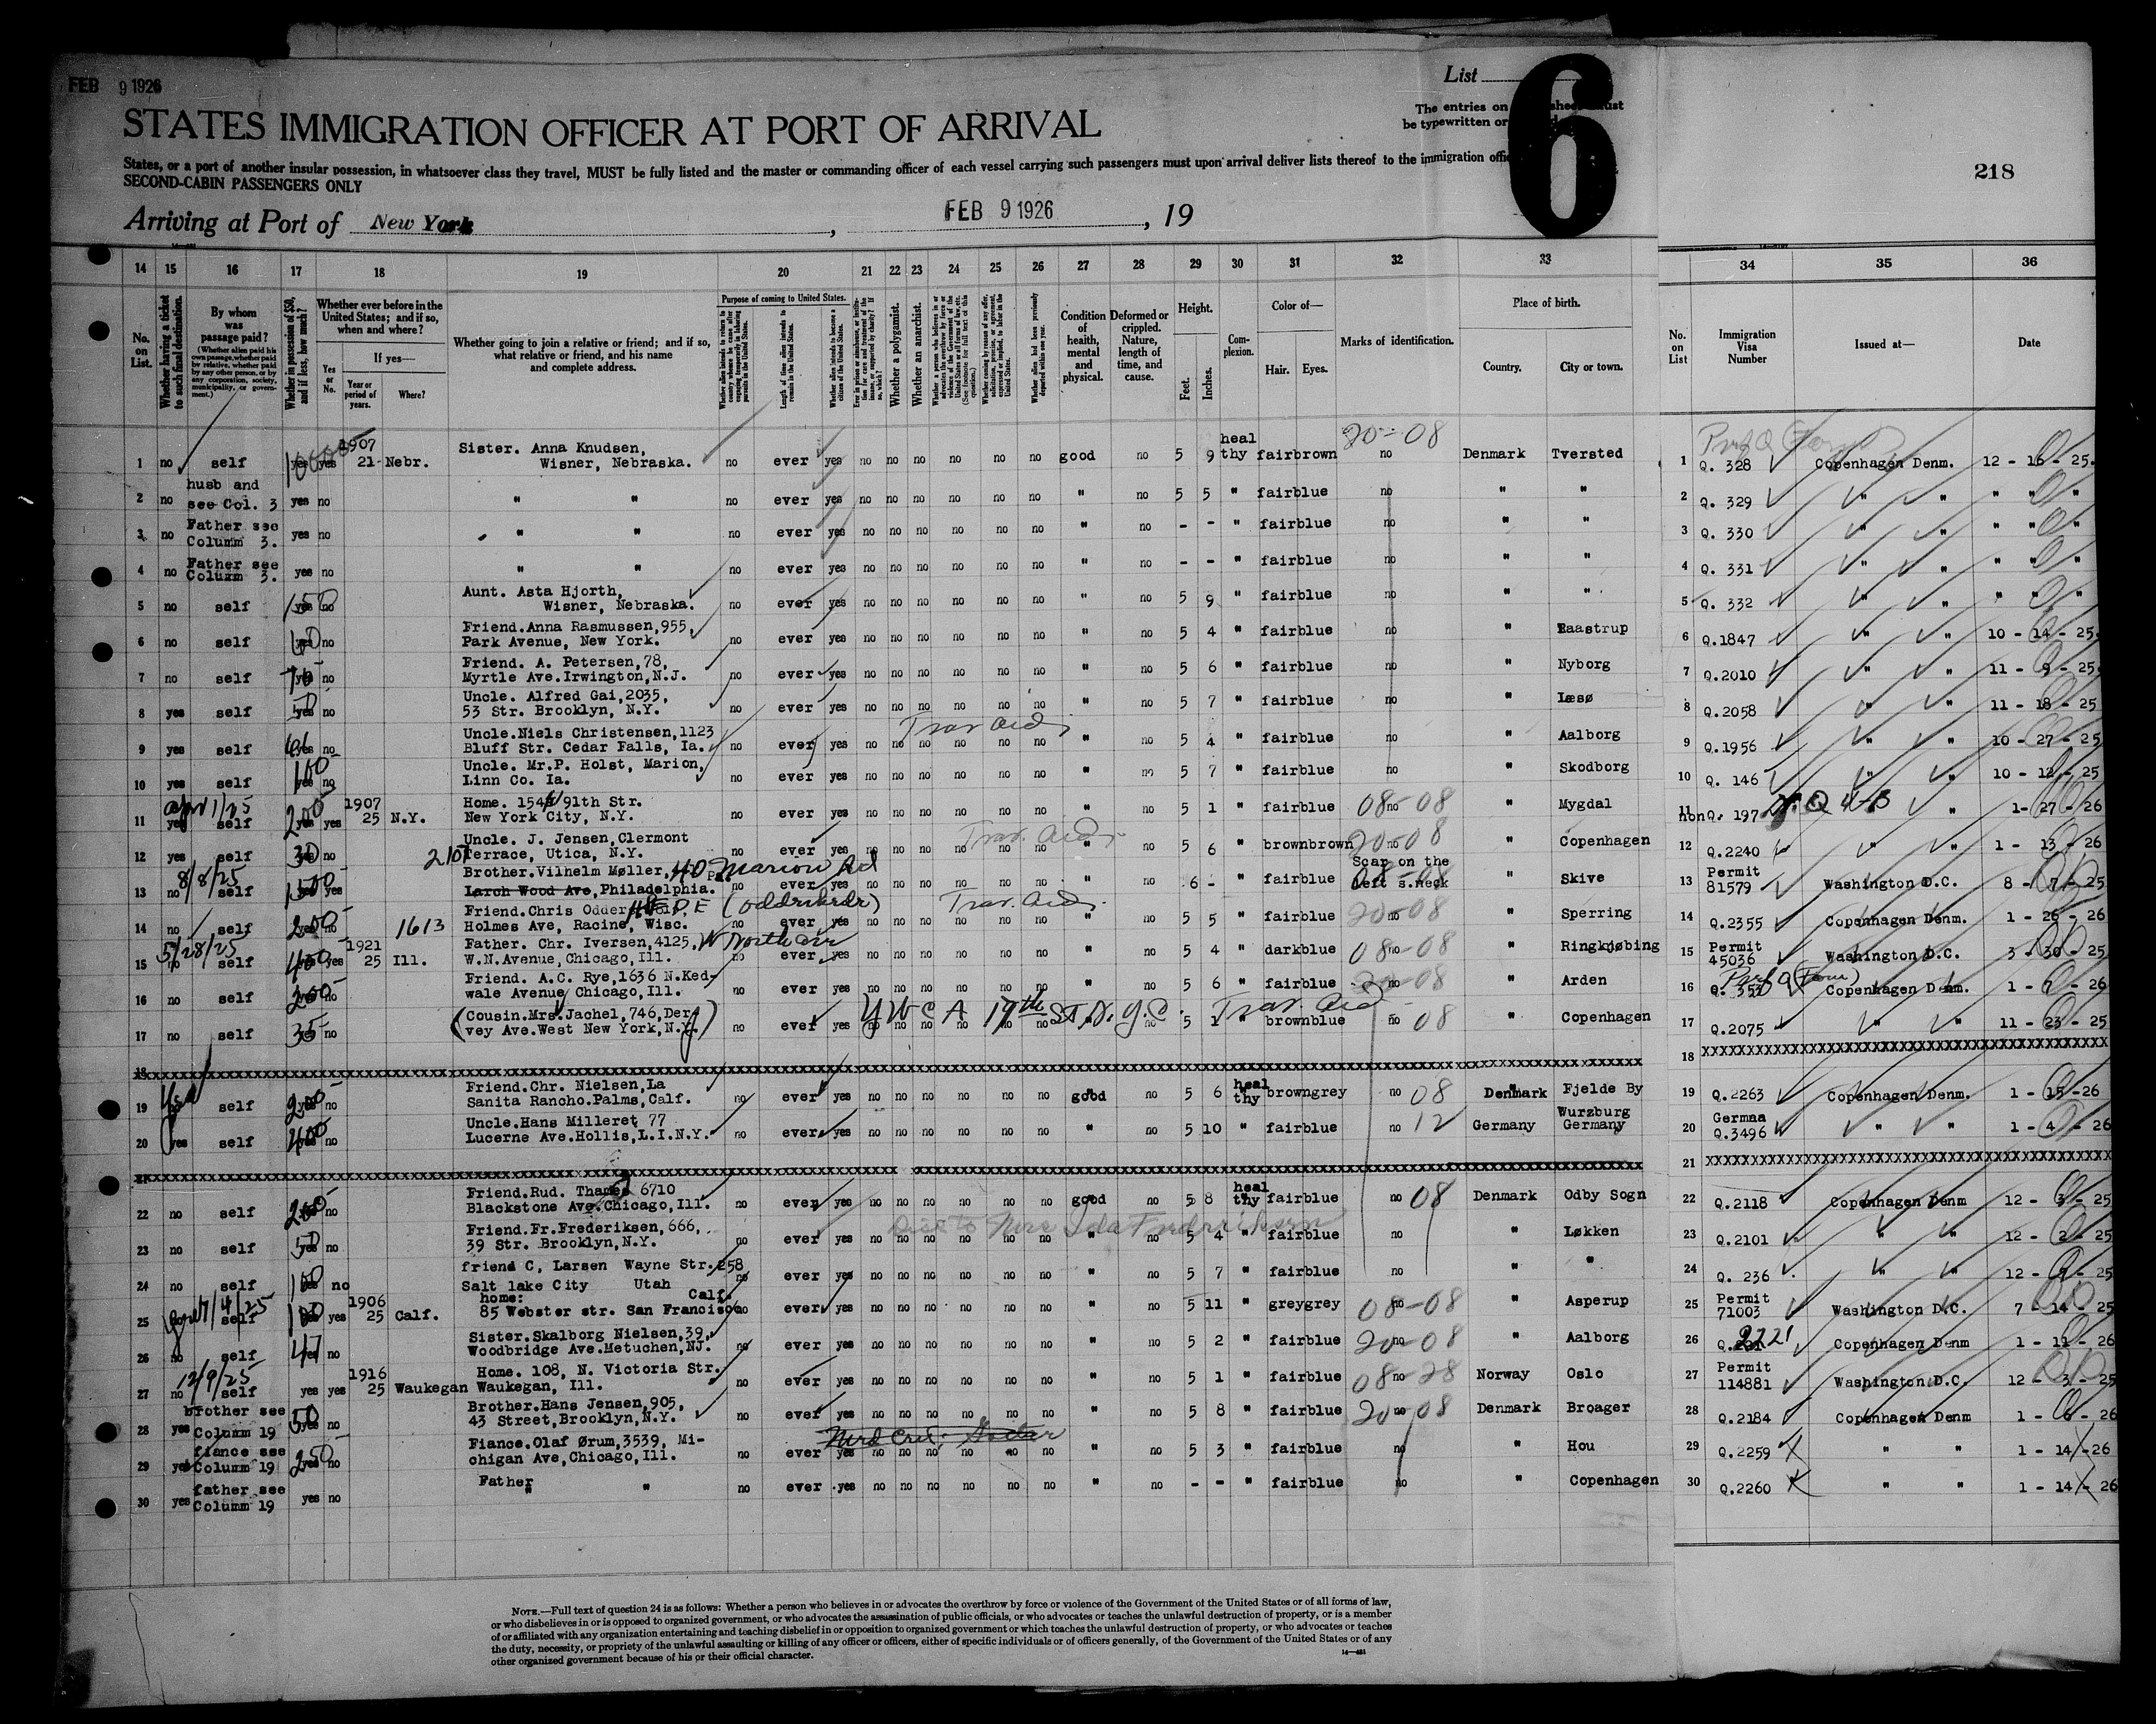 FEB 9 1926
List
6
The entries on
be typewritten or
STATES IMMIGRATION OFFICER AT PORT OF ARRIVAL
States, or a port of another insular possession, in whatsoever class they travel, MUST be fully listed and the master or commanding officer of each vessel carrying such passengers must upon arrival deliver lists thereof to the immigration
SECOND-CABIN PASSENGERS ONLY
218
Arriving at Port of New York, FEB 9 1926, 19
14 15 16 17 18 19 20 21 22 23 24 25 26 27 28 29 30 31 32 33 34 35 36
No. on List.
Whether having a ticket to such final destination.
By whom was passage paid?
(Whether alien paid his own passage, whether paid by relative, whether paid by any other person, or by any corporation, society, municipality, or government.)
Whether in possession of $50, and if less, how much?
Whether ever before in the United States; and if so, when and where?
Yes or No.
If yes—
Year or period of years.
Where?
Whether going to join a relative or friend; and if so, what relative or friend, and his name and complete address.
Purpose of coming to United States.
Length of time alien intends to remain in the United States.
Whether alien intends to become a citizen of the United States.
Whether a polygamist.
Whether an anarchist.
Condition of health, mental and physical.
Deformed or crippled. Nature, length of time, and cause.
Height.
Feet. Inches.
Complexion.
Color of—
Hair. Eyes.
Marks of identification.
Place of birth.
Country. City or town.
No. on List
Immigration Visa Number
Issued at—
Date
1 no self yes yes 1907 21 Nebr. Sister. Anna Knudsen, Wisner, Nebraska. no ever yes no no no no no no good no 5 9 heal thy fair brown 20-08 no Denmark Tversted 1 Q. 328 Copenhagen Denm. 12 - 16 - 25.
2 no husb and see Col. 3 yes no " " no ever yes no no no no no no " no 5 5 " fair blue no " " 2 Q. 329 " " " " "
3 no Father see Column 3. yes no " " no ever yes no no no no no no " no - - " fair blue no " " 3 Q. 330 " " " " "
4 no Father see Column 3. yes no " " no ever yes no no no no no no " no - - " fair blue no " " 4 Q. 331 " " " " "
5 no self 150 yes no Aunt. Asta Hjorth, Wisner, Nebraska. no ever yes no no no no no no " no 5 9 " fair blue no " " 5 Q. 332 " " " " "
6 no self 60 yes no Friend.Anna Rasmussen,955, Park Avenue, New York. no ever yes no no no no no no " no 5 4 " fair blue no " Raastrup 6 Q.1847 " " 10 - 14 - 25.
7 no self 75 yes no Friend. A. Petersen,78, Myrtle Ave.Irwington,N.J. no ever yes no no no no no no " no 5 6 " fair blue no " Nyborg 7 Q.2010 " " 11 - 9 - 25.
8 yes self 50 yes no Uncle. Alfred Gai,2035, 53 Str. Brooklyn, N.Y. no ever yes no no no no no no " no 5 7 " fair blue no " Læsø 8 Q.2058 " " 11 - 18 - 25
9 yes self yes no Uncle.Niels Christensen,1123 Bluff Str. Cedar Falls, Ia. no ever yes no no Trav Aid no no no no " no 5 4 " fair blue no " Aalborg 9 Q.1956 " " 10 - 27 - 25
10 yes self 100 yes no Uncle. Mr.P. Holst, Marion, Linn Co. Ia. no ever yes no no no no no no " no 5 7 " fair blue no " Skodborg 10 Q. 146 " " 10 - 12 - 25
11 yes self 200 yes yes 1907 25 N.Y. Home. 154 W 91th Str. New York City, N.Y. no ever yes no no no no no no " no 5 1 " fair blue 08-08 no " Mygdal 11 non Q. 197 Q 4-B " 1- 27 - 26
12 yes self 30 yes no Uncle. J. Jensen,Clermont Terrace, Utica, N.Y. no ever yes no no no Trav. Aid no no no " no 5 6 " brown brown 20-08 no " Copenhagen 12 Q.2240 " " 1 - 13 - 26
13 8/8/25 no self yes yes Brother.Vilhelm Møller, Larch Wood Ave,Philadelphia. 40 Marion Rd no ever yes no no no no no no " no 6 - " fair blue Scar on the left s.neck " Skive 13 Permit 81579 Washington D.C. 8 - 7 - 25
14 no self 200 yes no 1613 Friend.Chris Odder Holmes Ave, Racine, Wisc. no ever yes no no no Trav. Aid no no no " no 5 5 " fair blue 20-08 no " Sperring 14 Q.2355 Copenhagen Denm. 1 - 26 - 26
15 5/28/25 no self 400 yes yes 1921 25 Ill. Father. Chr. Iversen,4125, W North av W.N.Avenue,Chicago,Ill. no ever yes no no no no no no " no 5 4 " dark blue 08-08 no " Ringkjøbing 15 Permit 45036 Washington D.C. 3 - 30 - 25
16 no self 200 yes no Friend. A.C. Rye,1636 N.Ked- wale Avenue Chicago,Ill. no ever yes no no no no no no " no 5 6 " fair blue 20-08 no " Arden 16 Q. 353 Copenhagen Denm. 1 - 7 - 26
17 no self 35 yes no (Cousin.Mrs.Jachel,746,Der vey Ave.West New York,N.Y.) no ever yes YWCA 17th ST. N.Y.C. Trav. Aid no no no no no no no 5 1 brown blue no 08 " Copenhagen 17 Q.2075 " " 11 - 23 - 25
18 xxxxxxxxxxxxxxxxxxxxxxxxxxxxxxxx 18 XXXXXXXXXXXXXXXXXXXXXXXX
19 no self 200 yes no Friend.Chr. Nielsen,La Sanita Rancho.Palms,Calf. no ever yes no no no no no no good no 5 6 heal thy brown grey no 08 Denmark Fjelde By 19 Q.2263 Copenhagen Denm. 1 - 15 -26
20 yes self 400 yes no Uncle.Hans Milleret 77 Lucerne Ave.Hollis,L.I.N.Y. no ever yes no no no no no no " no 5 10 " fair blue no 12 Germany Wurzburg Germany 20 Germaa Q.3496 " " 1 - 4 - 26
21 xxxxxxxxxxxxxxxxxxxxxxxxxxxxxxxx 21 XXXXXXXXXXXXXXXXXXXXXXXX
22 no self 200 yes no Friend.Rud. Thames 6710 Blackstone Ave.Chicago,Ill. no ever yes no no no no no no good no 5 8 heal thy fair blue no 08 Denmark Odby Sogn 22 Q.2118 Copenhagen Denm 12 - 3 - 25
23 no self 50 yes no Friend.Fr.Frederiksen,666, 39 Str. Brooklyn,N.Y. no ever yes no no no no no no " no 5 4 " fair blue no " Løkken 23 Q.2101 " " 12 - 2 - 25
24 no self 100 yes no friend C, Larsen Wayne Str. 258 Salt lake City Utah no ever yes no no no no no no " no 5 7 " fair blue no " " 24 Q. 236 " " 12 - 9 - 25
25 self 100 yes yes 1906 25 Calf. home: 85 Webster str. San Francisco Calf. no ever yes no no no no no no " no 5 11 " grey grey 08-08 no " Asperup 25 Permit 71003 Washington D.C. 7 - 14 - 25
26 no self 47 yes no Sister.Skalborg Nielsen,39, Woodbridge Ave.Metuchen,NJ. no ever yes no no no no no no " no 5 2 " fair blue 20-08 no " Aalborg 26 Q.2221 Copenhagen Denm 1 - 11 - 26
27 12/9/25 no self yes yes 1916 25 Waukegan Home. 108, N. Victoria Str. Waukegan, Ill. no ever yes no no no no no no " no 5 1 " fair blue 08-28 no Norway Oslo 27 Permit 114881 Washington D.C. 12 - 3 - 25
28 yes brother see Column 19 50 yes no Brother.Hans Jensen,905, 43 Street,Brooklyn,N.Y. no ever yes no no no no no no " no 5 8 " fair blue 20-08 no Denmark Broager 28 Q.2184 Copenhagen Denm 1 - 6 - 26
29 yes fiance see Column 19 250 yes no Fiance.Olaf Ørum,3539, Mi- chigan Ave,Chicago,Ill. no ever yes no no no no no no " no 5 3 " fair blue no " Hou 29 Q.2259 " " 1 - 14 -26
30 yes father see Column 19 yes no Father " " no ever yes no no no no no no " no - - " fair blue no " Copenhagen 30 Q.2260 " " 1 - 14 - 26
NOTE.—Full text of question 24 is as follows: Whether a person who believes in or advocates the overthrow by force or violence of the Government of the United States or of all forms of law,
or who disbelieves in or is opposed to organized government, or who advocates the assassination of public officials, or who advocates or teaches the unlawful destruction of property, or is a member
of or affiliated with any organization entertaining and teaching disbelief in or opposition to organized government or which teaches the unlawful destruction of property, or who advocates or teaches
the duty, necessity, or propriety of the unlawful assaulting or killing of any officer or officers, either of specific individuals or of officers generally, of the Government of the United States or of any
other organized government because of his or their official character.
14—481